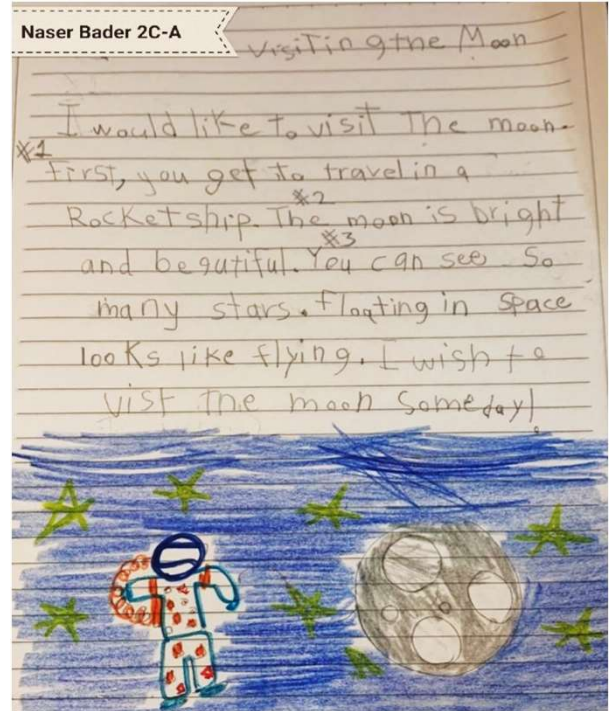 Naser Bader 2C-A
Visiting the Moon
I would like to visit The moon.
#1
First, you get to travel in a
#2
Rocketship. The moon is bright
#3
and beautiful. You can see so
many stars. Floating in space
looks like flying. I wish to
vist the moon someday!